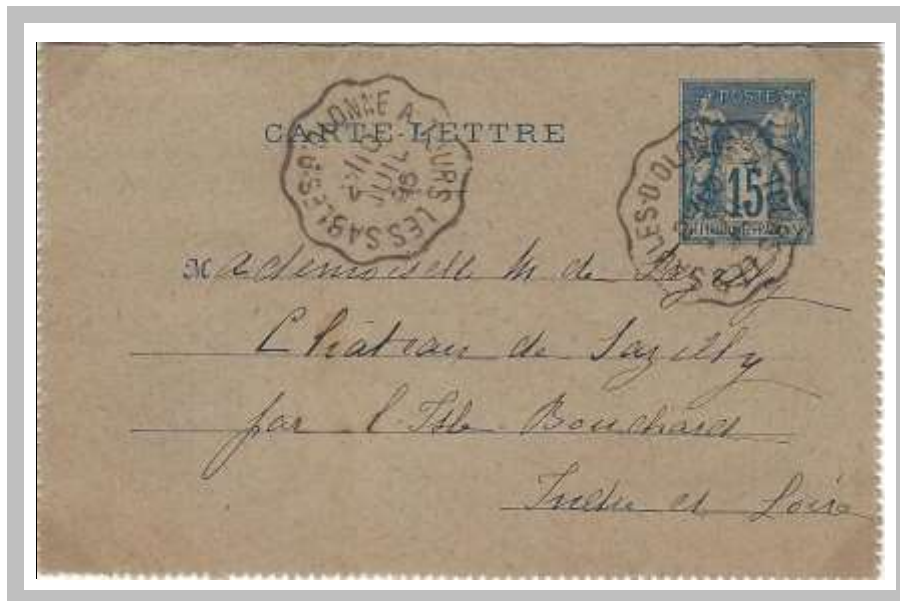 CARTE-LETTRE
LES SABLES-D'OLONNE A TOURS
13
JUIL
96
POSTES
15
LES-D'OLONNE
Mademoiselle M de
Château de Sazilly
par l'Isle Bouchard
Indre et Loire